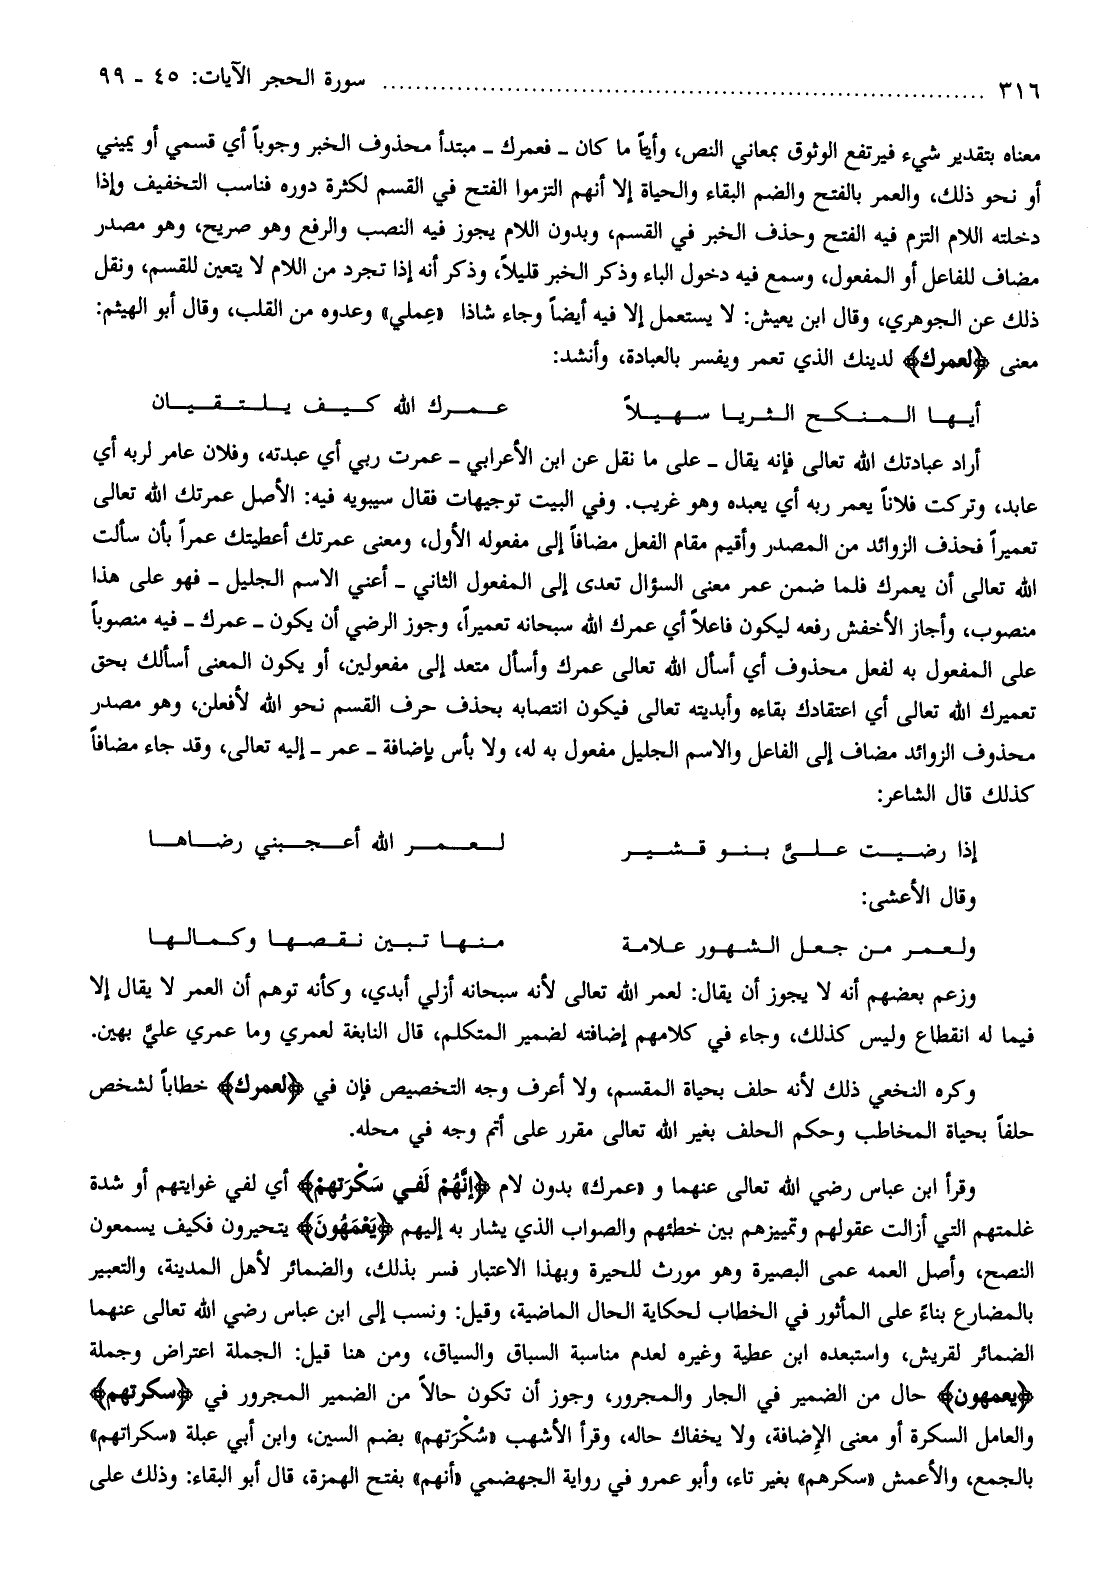 ٣١٦ ........................................ سورة الحجر الآيات: ٤٥ ـ ٩٩
معناه بتقدير شيء فيرتفع الوثوق بمعاني النص، وأياً ما كان ـ فعمرك ـ مبتدأ محذوف الخبر وجوباً أي قسمي أو يميني
أو نحو ذلك، والعمر بالفتح والضم البقاء والحياة إلا أنهم التزموا الفتح في القسم لكثرة دوره فناسب التخفيف وإذا
دخلته اللام التزم فيه الفتح وحذف الخبر في القسم، وبدون اللام يجوز فيه النصب والرفع وهو صريح، وهو مصدر
مضاف للفاعل أو المفعول، وسمع فيه دخول الباء وذكر الخبر قليلاً، وذكر أنه إذا تجرد من اللام لا يتعين للقسم، ونقل
ذلك عن الجوهري، وقال ابن يعيش: لا يستعمل إلا فيه أيضاً وجاء شاذا «عِملي» وعدوه من القلب، وقال أبو الهيثم:
معنى ﴿لعمرك﴾ لدينك الذي تعمر ويفسر بالعبادة، وأنشد:
أيها المنكح الثريا سهيلاً عمرك الله كيف يلتقيان
أراد عبادتك الله تعالى فإنه يقال ـ على ما نقل عن ابن الأعرابي ـ عمرت ربي أي عبدته، وفلان عامر لربه أي
عابد، وتركت فلاناً يعمر ربه أي يعبده وهو غريب. وفي البيت توجيهات فقال سيبويه فيه: الأصل عمرتك الله تعالى
تعميراً فحذف الزوائد من المصدر وأقيم مقام الفعل مضافاً إلى مفعوله الأول، ومعنى عمرتك أعطيتك عمراً بأن سألت
الله تعالى أن يعمرك فلما ضمن عمر معنى السؤال تعدى إلى المفعول الثاني ـ أعني الاسم الجليل ـ فهو على هذا
منصوب، وأجاز الأخفش رفعه ليكون فاعلاً أي عمرك الله سبحانه تعميراً، وجوز الرضي أن يكون ـ عمرك ـ فيه منصوباً
على المفعول به لفعل محذوف أي أسأل الله تعالى عمرك وأسأل متعد إلى مفعولين، أو يكون المعنى أسألك بحق
تعميرك الله تعالى أي اعتقادك بقاءه وأبديته تعالى فيكون انتصابه بحذف حرف القسم نحو الله لأفعلن، وهو مصدر
محذوف الزوائد مضاف إلى الفاعل والاسم الجليل مفعول به له، ولا بأس بإضافة ـ عمر ـ إليه تعالى، وقد جاء مضافاً
كذلك قال الشاعر:
إذا رضيت عليَّ بنو قشير لعمر الله أعجبني رضاها
وقال الأعشى:
ولعمر من جعل الشهور علامة منها تبين نقصها وكمالها
وزعم بعضهم أنه لا يجوز أن يقال: لعمر الله تعالى لأنه سبحانه أزلي أبدي، وكأنه توهم أن العمر لا يقال إلا
فيما له انقطاع وليس كذلك، وجاء في كلامهم إضافته لضمير المتكلم، قال النابغة لعمري وما عمري عليَّ بهين.
وكره النخعي ذلك لأنه حلف بحياة المقسم، ولا أعرف وجه التخصيص فإن في ﴿لعمرك﴾ خطاباً لشخص
حلفاً بحياة المخاطب وحكم الحلف بغير الله تعالى مقرر على أتم وجه في محله.
وقرأ ابن عباس رضي الله تعالى عنهما و «عمرك» بدون لام ﴿إنَّهُمْ لَفي سَكْرَتهمْ﴾ أي لفي غوايتهم أو شدة
غلمتهم التي أزالت عقولهم وتمييزهم بين خطئهم والصواب الذي يشار به إليهم ﴿يَعْمَهُونَ﴾ يتحيرون فكيف يسمعون
النصح، وأصل العمه عمى البصيرة وهو مورث للحيرة وبهذا الاعتبار فسر بذلك، والضمائر لأهل المدينة، والتعبير
بالمضارع بناءً على المأثور في الخطاب لحكاية الحال الماضية، وقيل: ونسب إلى ابن عباس رضي الله تعالى عنهما
الضمائر لقريش، واستبعده ابن عطية وغيره لعدم مناسبة السباق والسياق، ومن هنا قيل: الجملة اعتراض وجملة
﴿يعمهون﴾ حال من الضمير في الجار والمجرور، وجوز أن تكون حالاً من الضمير المجرور في ﴿سكرتهم﴾
والعامل السكرة أو معنى الإضافة، ولا يخفاك حاله، وقرأ الأشهب «سُكْرَتهم» بضم السين، وابن أبي عبلة «سكراتهم»
بالجمع، والأعمش «سكرهم» بغير تاء، وأبو عمرو في رواية الجهضمي «أنهم» بفتح الهمزة، قال أبو البقاء: وذلك على